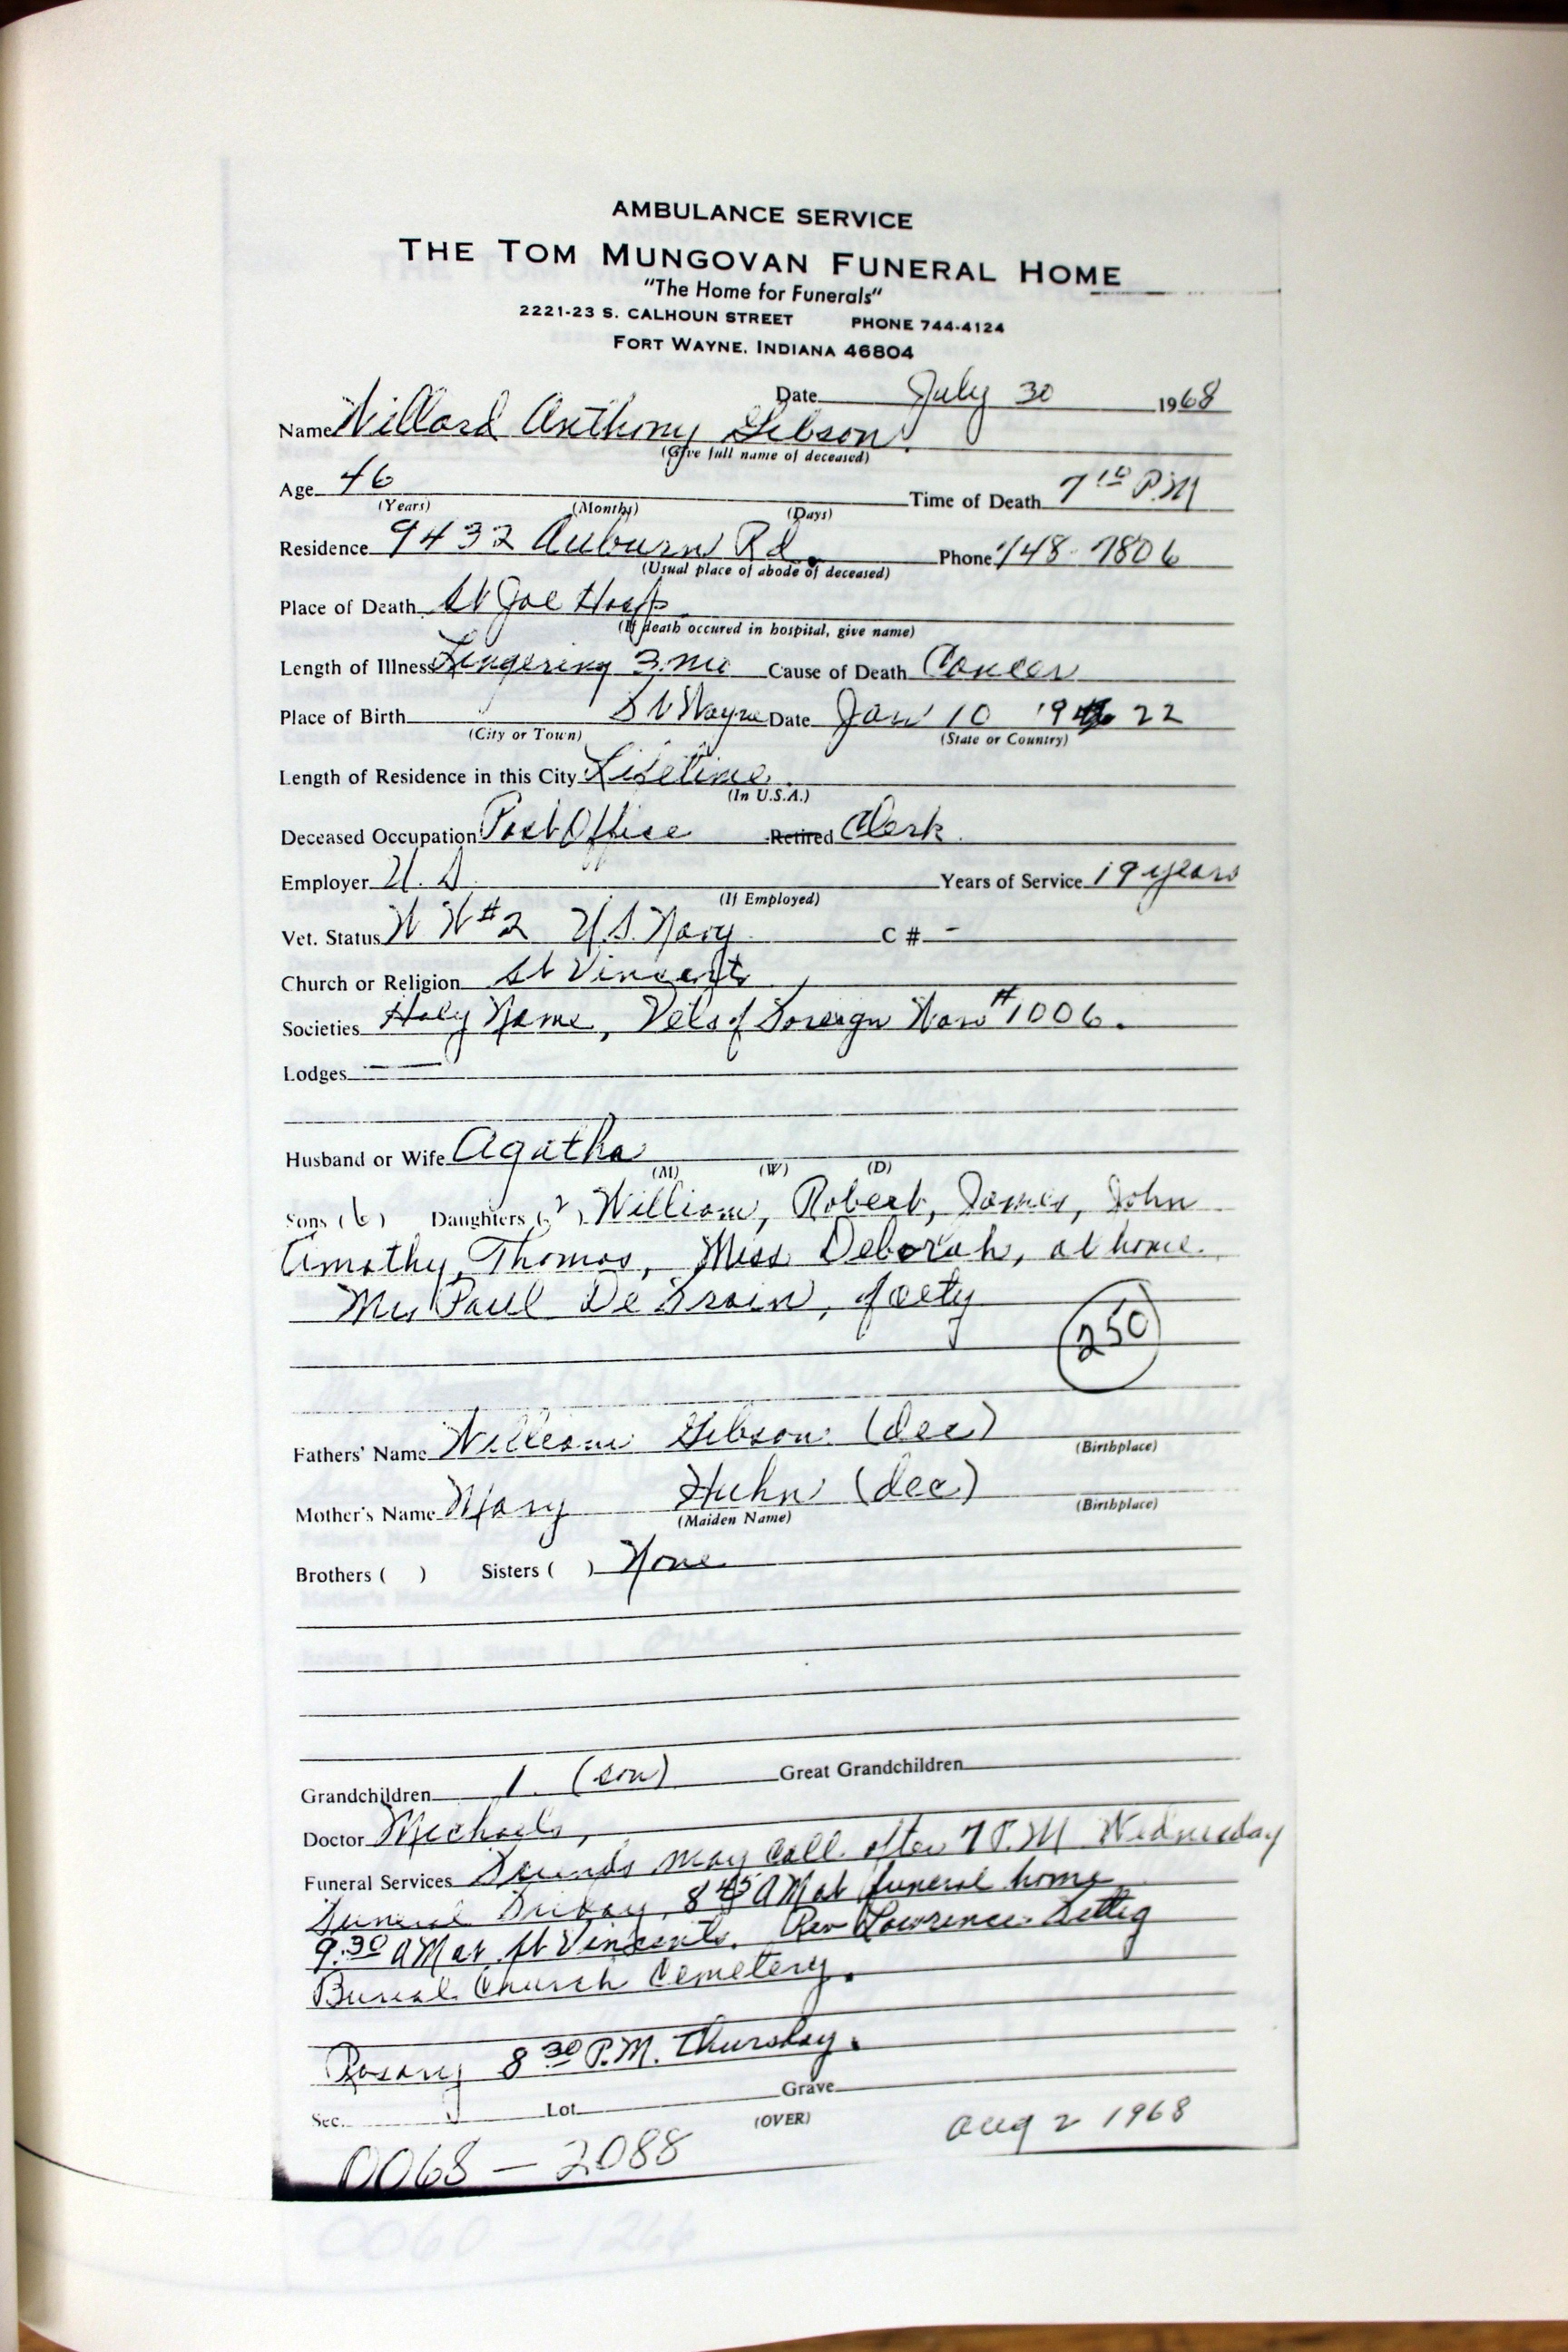 AMBULANCE SERVICE
THE TOM MUNGOVAN FUNERAL HOME
"The Home for Funerals"
2221-23 S. CALHOUN STREET PHONE 744-4124
FORT WAYNE, INDIANA 46804
Date July 30 1968
Name Willard Anthony Gibson
(Give full name of deceased)
Age 46 Time of Death 7 10 P.M
(Years) (Months) (Days)
Residence 9432 Auburn Rd. Phone 748-7806
(Usual place of abode of deceased)
Place of Death St Joe Hosp
(If death occured in hospital, give name)
Length of Illness Lingering 3 mo Cause of Death Cancer
Place of Birth Ft Wayne Date Jan 10 19 22
(City or Town) (State or Country)
Length of Residence in this City Lifetime
(In U.S.A.)
Deceased Occupation Post Office Retired Clerk
Employer U.S. Years of Service 19 years
(If Employed)
Vet. Status W W #2 U.S. Navy C # -
Church or Religion St Vincents
Societies Holy Name, Vets of Foreign Wars #1006.
Lodges
Husband or Wife Agatha
(M) (W) (D)
Sons (6) Daughters (2) William, Robert, James, John
Timothy, Thomas, Miss Deborah, at home.
Mrs Paul De Grain, of city
250
Fathers' Name William Gibson (dec)
(Birthplace)
Mother's Name Mary Huhn (dec)
(Maiden Name) (Birthplace)
Brothers ( ) Sisters ( ) None
Grandchildren 1. (son) Great Grandchildren
Doctor Michaels,
Funeral Services Friends may call after 7 P.M Wednesday
Funeral Friday, 8 45 AM at funeral home
9:30 AM at St Vincents. Rev Lawrence Fettig
Burial Church Cemetery.
Rosary 8 30 P.M. Thursday.
Sec. Lot Grave
(OVER)
Aug 2 1968
0068 - 2088
0060 - 1266